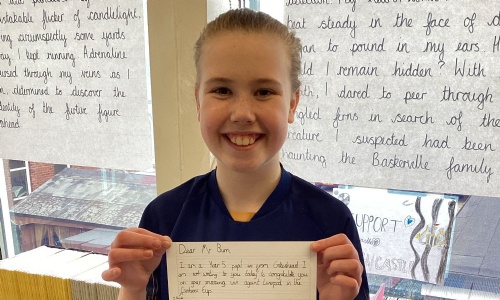 unstakable flicker of candlelight,
ing circumspectly some yards
tly, I kept running. Adrenaline
ursed through my veins as I
on, determined to discover the
dentity of the furtive figure
ahead
beat steady in the face of
to pound in my ears
ld I remain hidden? With
th, I dared to peer through
ngled ferns in search of the
creature I suspected had been
haunting the Baskerville family
SUPPORT
CASTLE
Dear Mr Burn,
I am a Year 5 pupil from Gateshead. I
am writing to you today to congratulate you
on your amazing win against Liverpool in the
Carabao Cup.